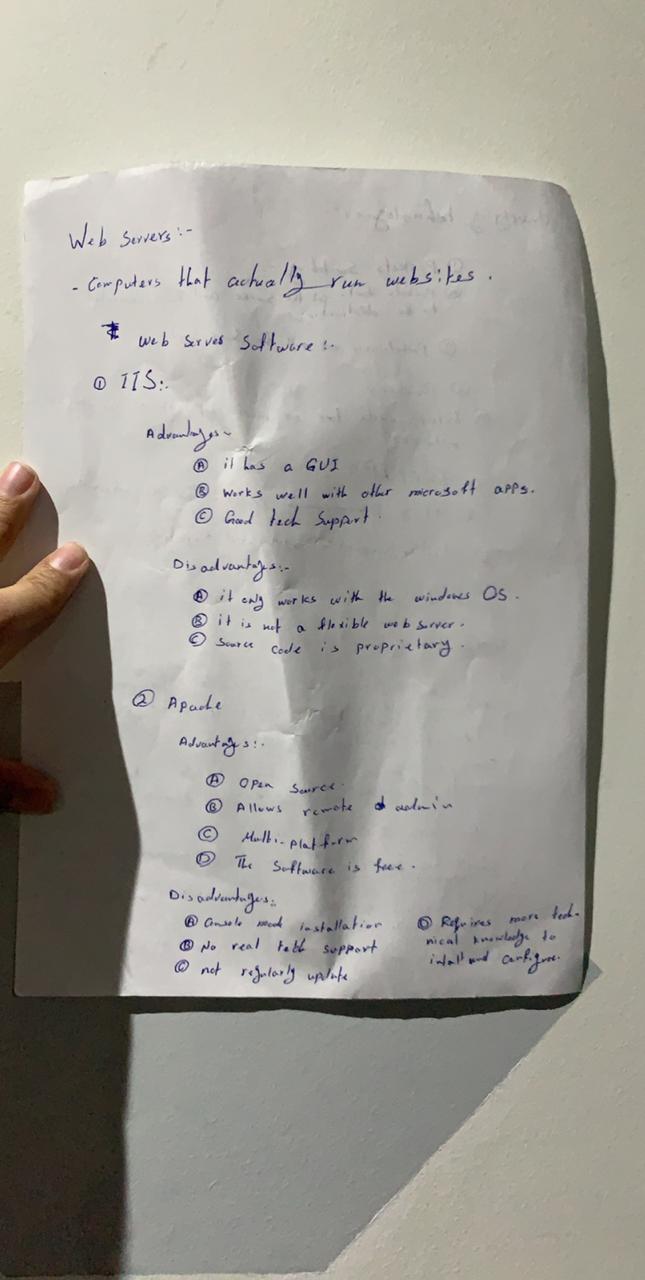 Web Servers:-
- Computers that actually run websites.
Web Serves Software:-
① IIS:-
Advantages-
Ⓐ it has a GUI
Ⓑ Works well with other microsoft apps.
Ⓒ Good tech Support.
Disadvantages:-
Ⓐ it only works with the windows OS.
Ⓑ it is not a flexible web server.
Ⓒ Source code is proprietary.
② Apache
Advantages:-
Ⓐ Open Source.
Ⓑ Allows remote admin
Ⓒ Multi-platform
Ⓓ The Software is free.
Disadvantages:-
Ⓐ Console mode installation
Ⓑ No real tech support
Ⓒ not regularly update
Ⓓ Requires more tech-
nical knowledge to
intall and configure.